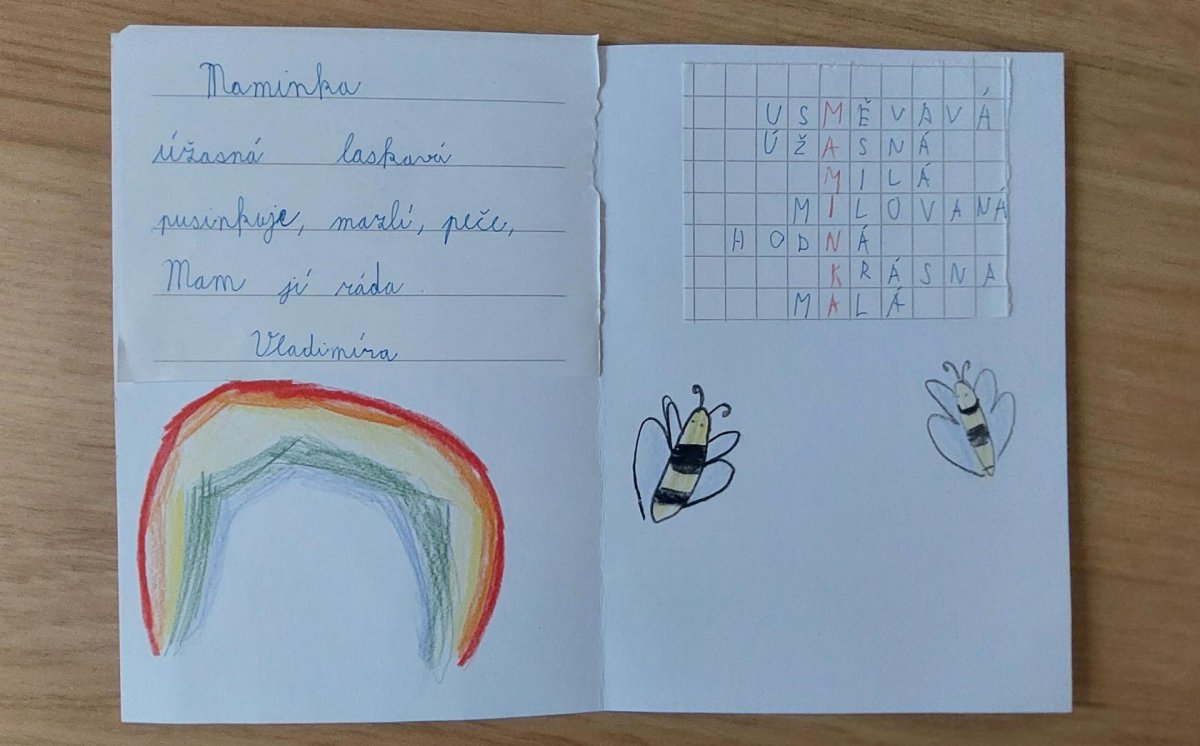 Maminka
úžasná laskavá
pusinkuje, mazlí, peče,
Mam jí ráda.
Vladimíra
USMĚVAVÁ
ÚŽASNÁ
MILÁ
MILOVANÁ
HODNÁ
KRÁSNA
MALÁ